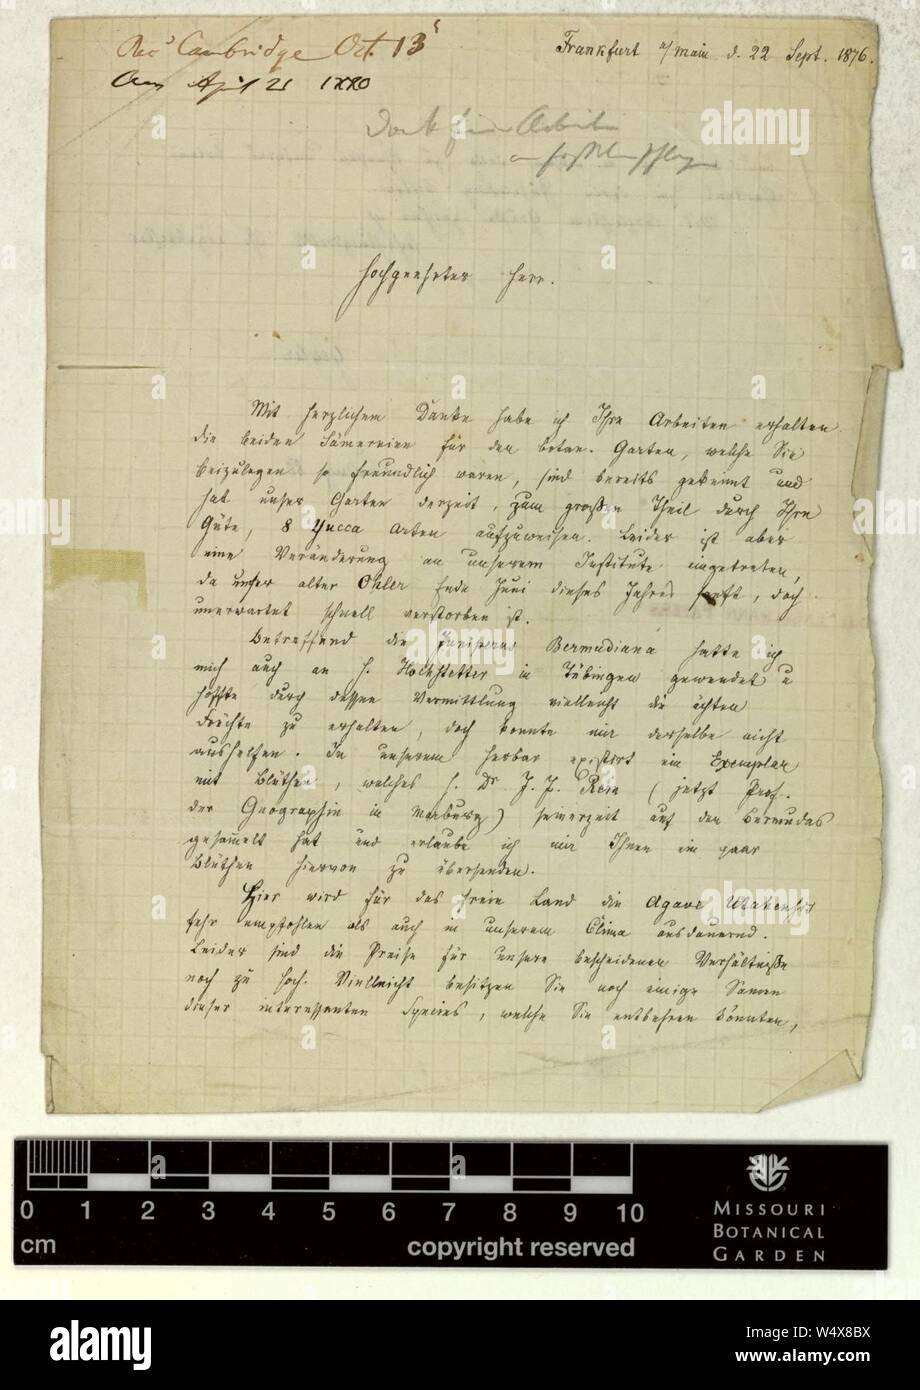 Rec'd Cambridge Oct. 13
Frankfurt a/main d. 22 Sept. 1876.
Ans April 21 1880
Dank für Arbeiten
Hochgeehrter Herr.
Mit herzlichem Danke habe ich Ihre Arbeiten erhalten
die beiden Sämereien für den botan. Garten, welche Sie
beizulegen so freundlich waren, sind bereits gekeimt und
hat unser Garten derzeit, zum großen Theil durch Ihre
Güte, 8 Yucca Arten aufzuweisen. Leider ist aber
eine Veränderung an unserem Institute eingetreten,
da unser alter Ohler Ende Juni dieses Jahres sanft, doch
unerwartet schnell verstorben ist.
Betreffend die Juniperus Bermudiana hatte ich
mich auch an H. Hochstetter in Tübingen gewendet u
hoffte durch dessen Vermittlung vielleicht die ächten
Früchte zu erhalten, doch konnte mir derselbe nicht
aushelfen. In unserem Herbar existirt ein Exemplar
mit Blüthen, welches H. Dr J. J. Rein (jetzt Prof.
der Geographie in Marburg) seinerzeit auf den Bermudas
gesammelt hat und erlaube ich mir Ihnen ein paar
Blüthen hiervon zu übersenden.
Hier wird für das freie Land die Agave Utahensis
sehr empfohlen als auch in unserem Clima ausdauernd.
Leider sind die Preise für unsere bescheidenen Verhältniße
noch zu hoch. Vielleicht besitzen Sie noch einige Samen
dieser interessanten Species, welche Sie entbehren könnten,
0 1 2 3 4 5 6 7 8 9 10
cm
copyright reserved
MISSOURI
BOTANICAL
GARDEN
alamy
Image ID: W4X8BX
www.alamy.com